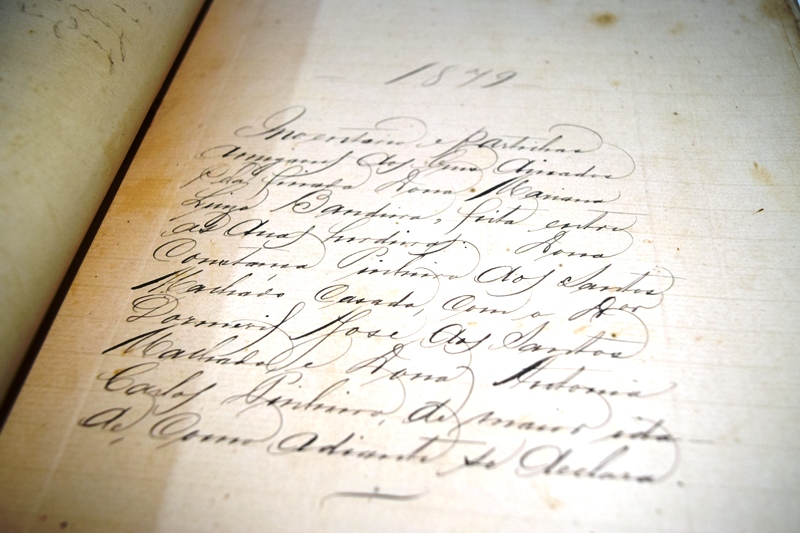 1879
Inventario e Partilhas
amigaveis dos bens deixados
pela finada Dona Mariana
Luiza Bandeira, feita entre
as duas herdeiras. Dona
Constança Pinheiro dos Santos
Machado casada, com o Dor
José dos Santos
Machado e Dona Antonia
Carlos Pinheiro, de maior ida-
de, Como adiante se declara.